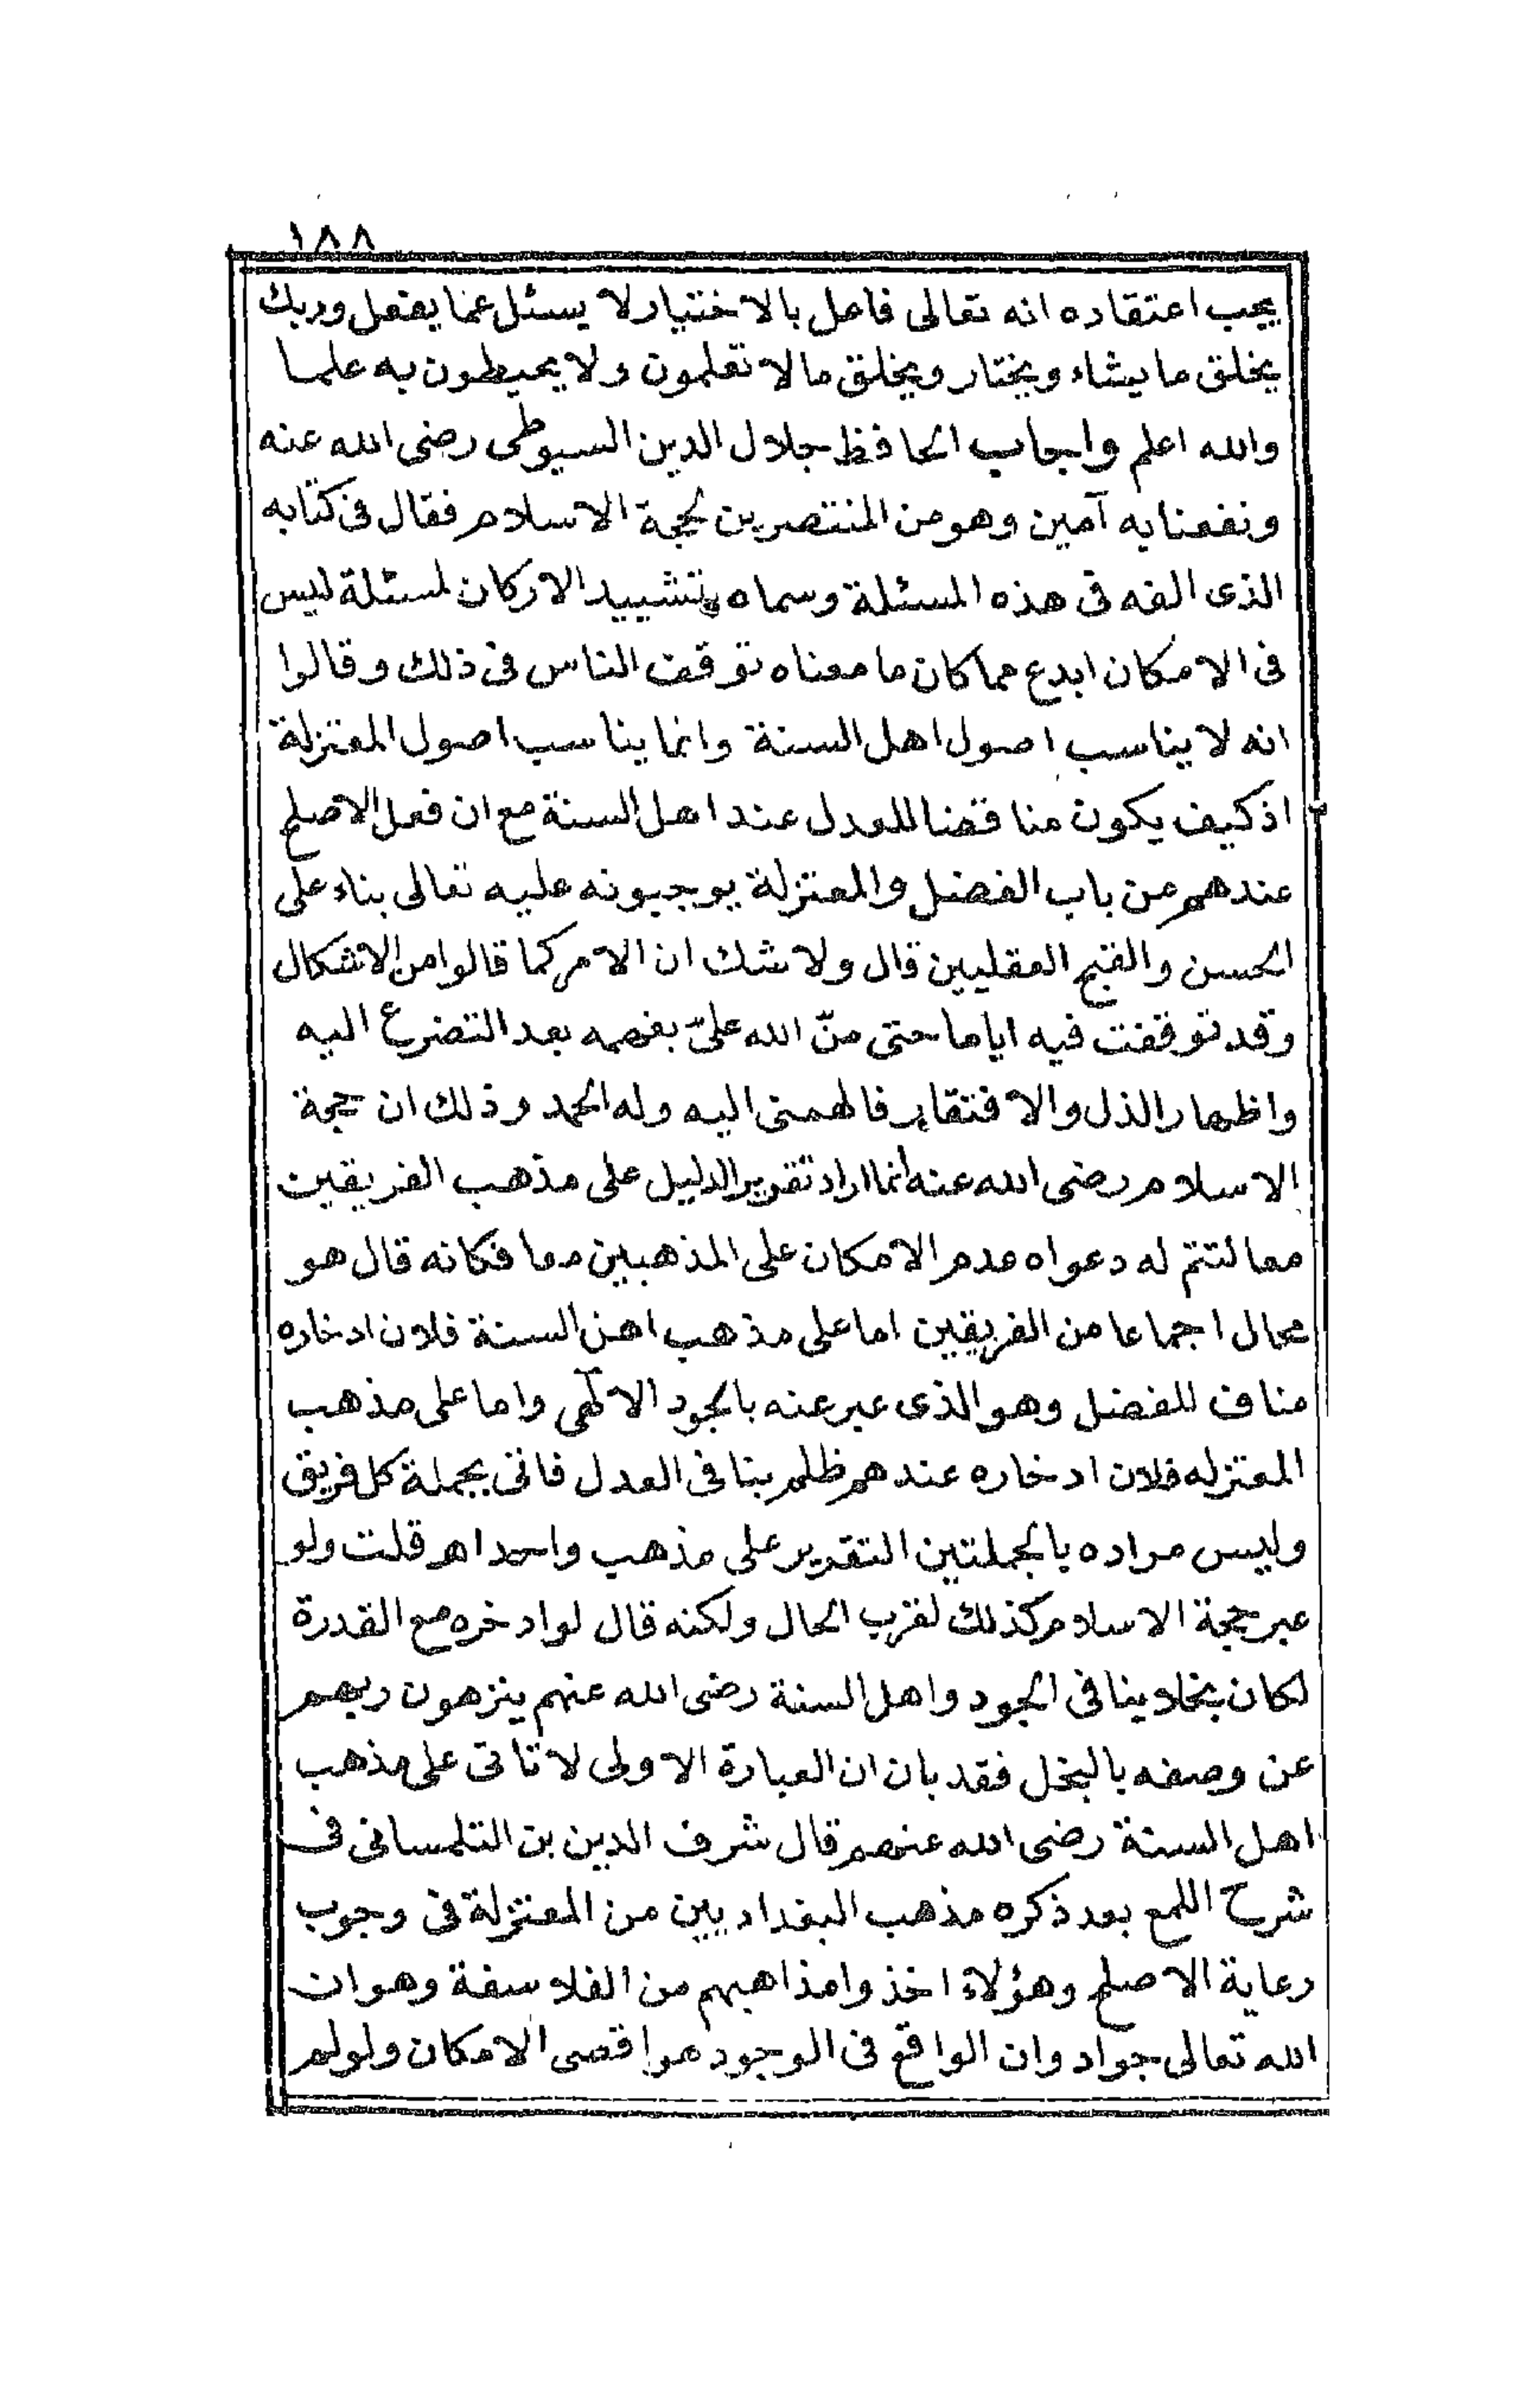 ١٨٨
يجب اعتقاده انه تعالى فاعل بالاختيار لا يسئل عما يفعل وربك
يخلق ما يشاء ويختار ويخلق ما لا تعلمون ولا يحيطون به علما
والله اعلم واجاب الحافظ جلال الدين السيوطى رضى الله عنه
ونفعنا به آمين وهو من المنتصرين لحجة الاسلام فقال فى كتابه
الذى الفه فى هذه المسئلة وسماه بتشييد الاركان لمسئلة ليس
فى الامكان ابدع مما كان ما معناه توقف الناس فى ذلك وقالوا
انه لا يناسب اصول اهل السنة وانما يناسب اصول المعتزلة
اذ كيف يكون مناقضا للعدل عند اهل السنة مع ان فعل الاصلح
عندهم من باب الفضل والمعتزلة يوجبونه عليه تعالى بناء على
الحسن والقبح العقليين قال ولا شك ان الامر كما قالوا من الاشكال
وقد توقفت فيه اياما حتى منّ الله علىّ بفهمه بعد التضرع اليه
واظهار الذل والافتقار فالهمنى اليه وله الحمد وذلك ان حجة
الاسلام رضى الله عنه انما اراد تقرير الدليل على مذهب الفريقين
معا لتتم له دعواه عدم الامكان على المذهبين معا فكانه قال هو
محال اجماعا من الفريقين اما على مذهب اهل السنة فلان ادخاره
مناف للفضل وهو الذى عبر عنه بالجود الالهى واما على مذهب
المعتزله فلان ادخاره عندهم ظلم ينافى العدل فاتى بجملة كل فريق
وليس مراده بالجملتين التقرير على مذهب واحد اهـ قلت ولو
عبر حجة الاسلام كذلك لقرب الحال ولكنه قال لو ادخره مع القدرة
لكان بخلا ينافى الجود واهل السنة رضى الله عنهم ينزهون ربهم
عن وصفه بالبخل فقد بان ان العبارة الاولى لا تاتى على مذهب
اهل السنة رضى الله عنهم قال شرف الدين بن التلمسانى فى
شرح اللمع بعد ذكره مذهب البغداديين من المعتزلة فى وجوب
رعاية الاصلح وهؤلاء اخذوا مذاهبهم من الفلاسفة وهو ان
الله تعالى جواد وان الواقع فى الوجود هو اقصى الامكان ولو لم